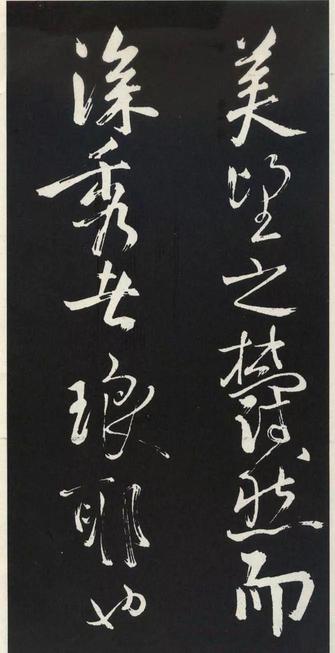 美望之蔚然而
深秀者琅耶也